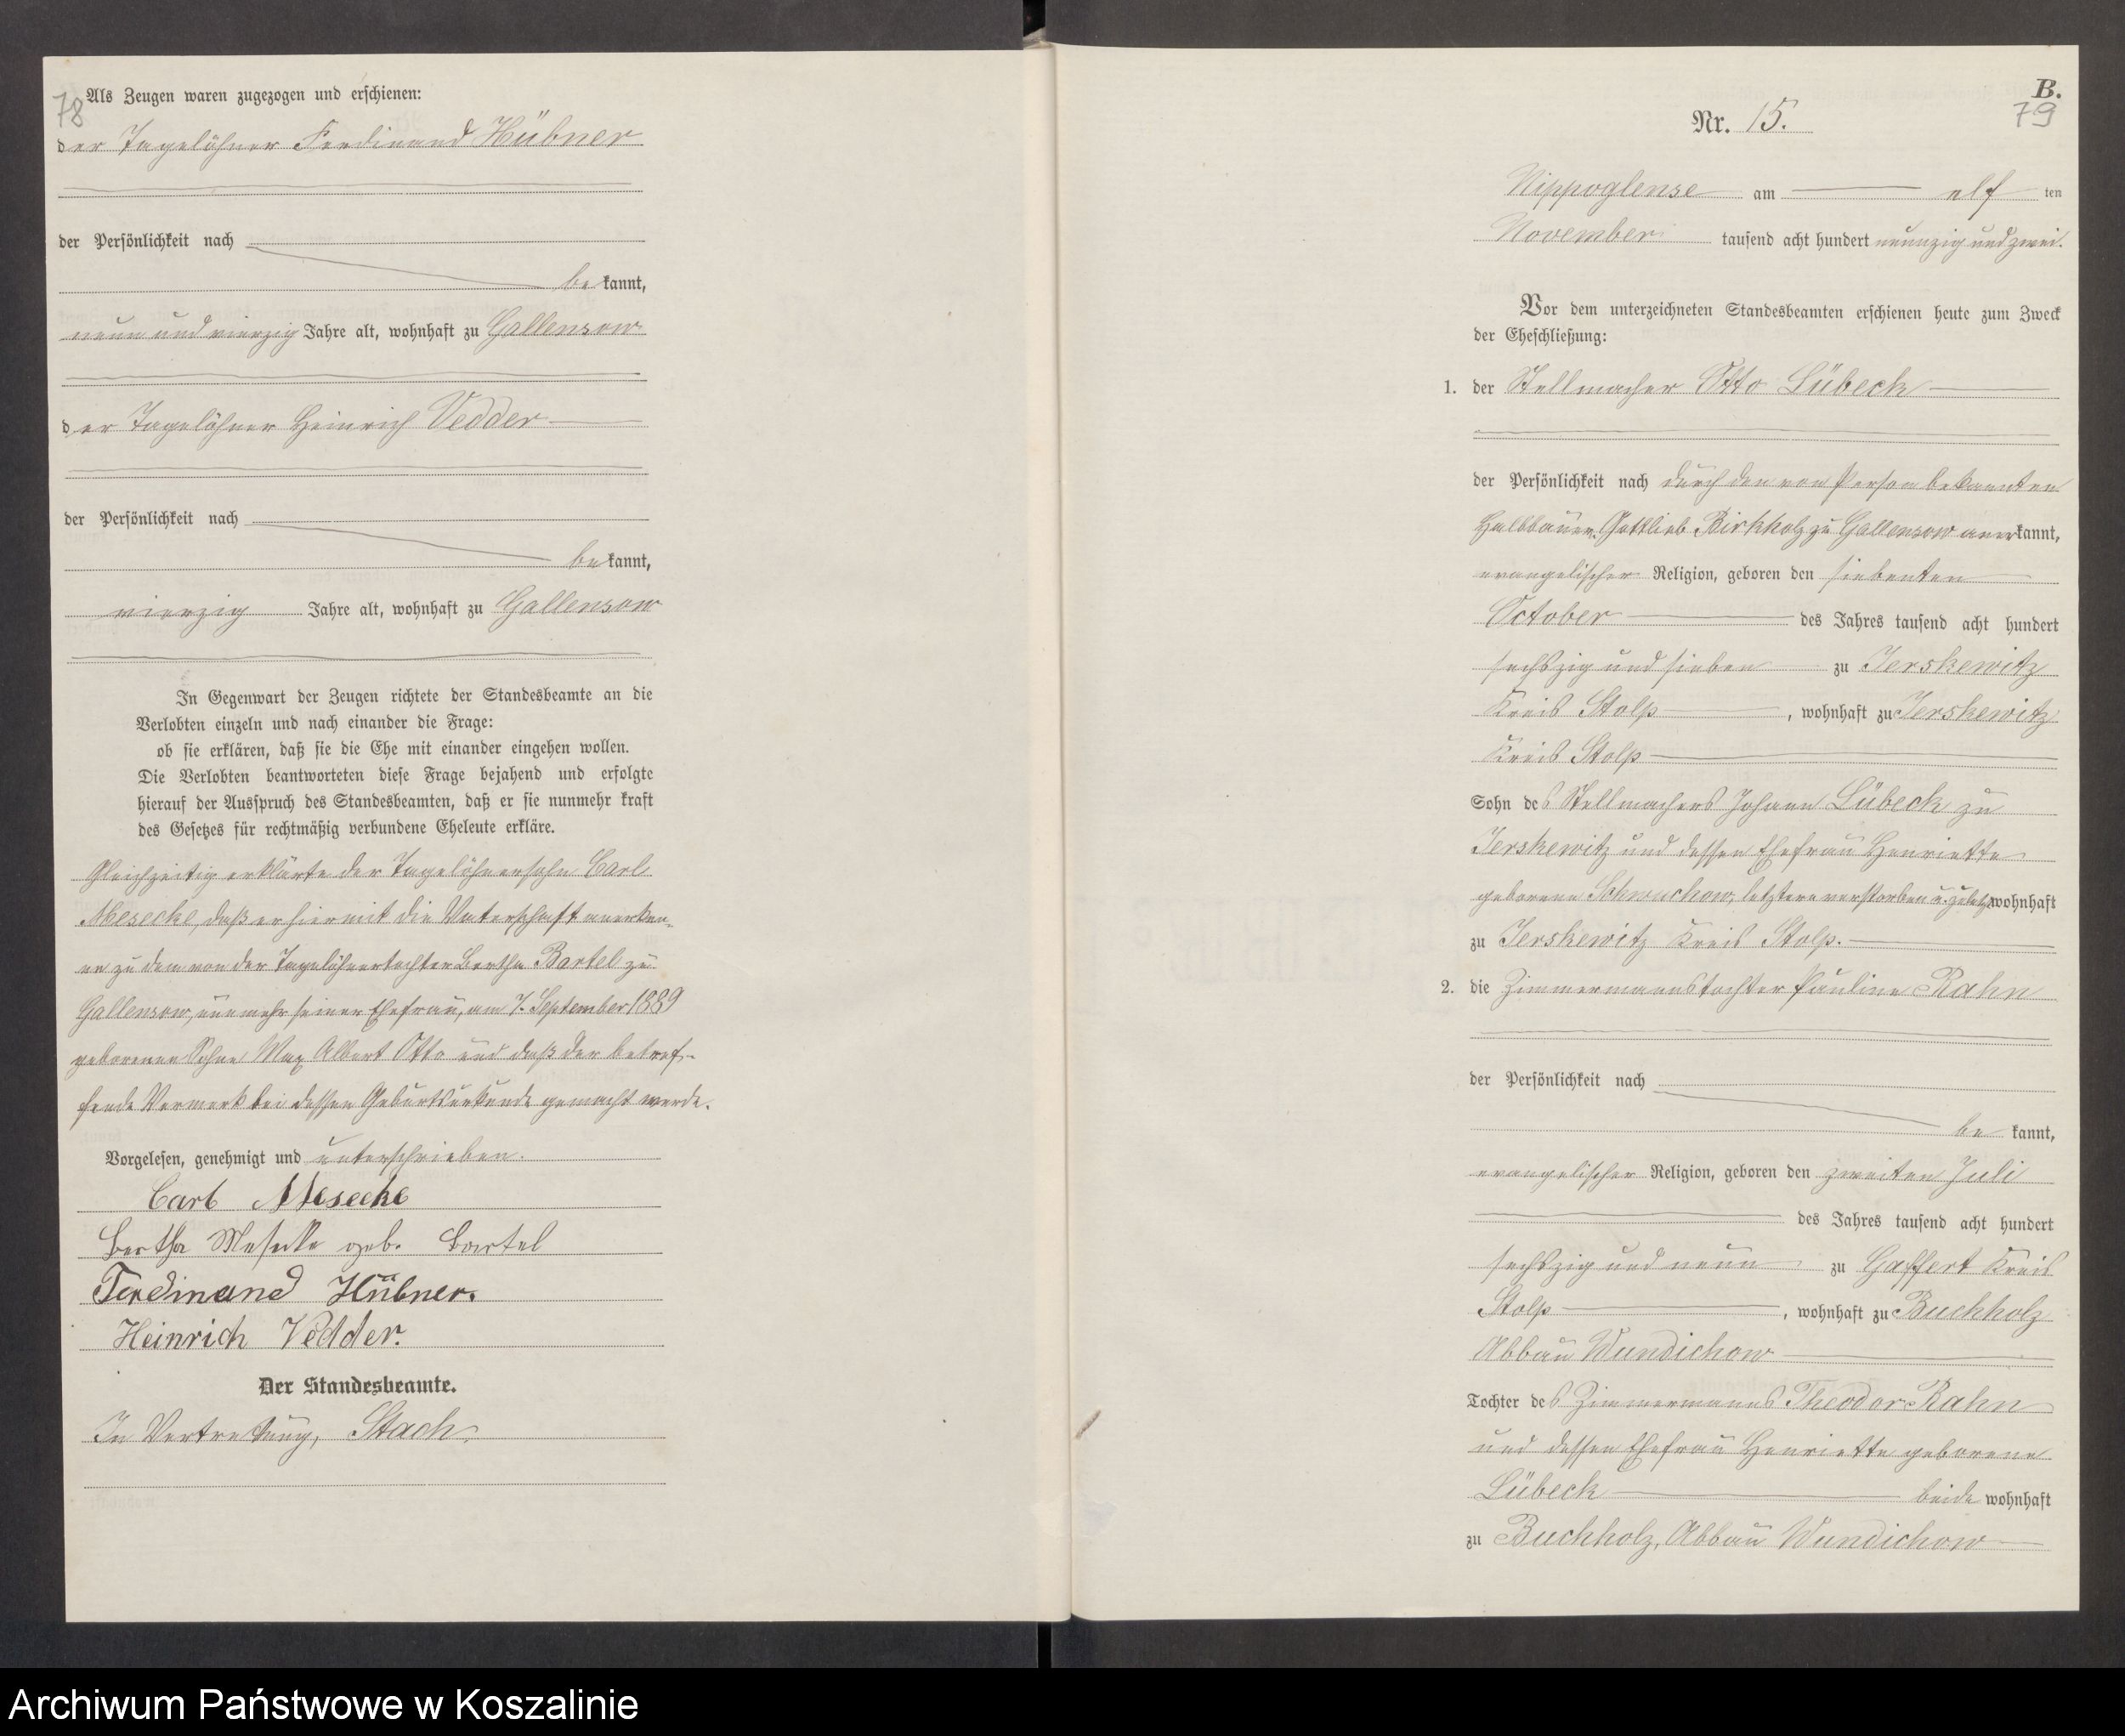 78
Als Zeugen waren zugezogen und erschienen:
der Tagelöhner Ferdinand Hübner
der Persönlichkeit nach
bekannt,
neun und vierzig Jahre alt, wohnhaft zu Gallensow
der Tagelöhner Heinrich Vedder
der Persönlichkeit nach
bekannt,
vierzig Jahre alt, wohnhaft zu Gallensow
In Gegenwart der Zeugen richtete der Standesbeamte an die
Verlobten einzeln und nach einander die Frage:
ob sie erklären, daß sie die Ehe mit einander eingehen wollen.
Die Verlobten beantworteten diese Frage bejahend und erfolgte
hierauf der Ausspruch des Standesbeamten, daß er sie nunmehr kraft
des Gesetzes für rechtmäßig verbundene Eheleute erkläre.
Gleichzeitig erklärte der Tagelöhnersohn Carl
Mesecke, daß er hiermit die Vaterschaft anerken-
ne zu dem von der Tagelöhnertochter Bertha Bartel zu
Gallensow, nunmehr seiner Ehefrau, am 7. September 1889
geborenen Sohne Max Albert Otto und daß der betref-
fende Vermerk bei dessen Geburtsurkunde gemacht werde.
Vorgelesen, genehmigt und unterschrieben.
Carl Mesecke
Bertha Mesecke geb. Bartel
Ferdinand Hübner.
Heinrich Vedder.
Der Standesbeamte.
In Vertretung, Stach.
B.
79
Nr. 15.
Nippoglense am elf ten
November tausend acht hundert neunzig und zwei.
Vor dem unterzeichneten Standesbeamten erschienen heute zum Zweck
der Eheschließung:
1. der Stellmacher Otto Lübeck
der Persönlichkeit nach durch den von Person bekannten
Halbbauer Gottlieb Birkholz zu Gallensow anerkannt,
evangelischer Religion, geboren den siebenten
October des Jahres tausend acht hundert
sechszig und sieben zu Jerskewitz
Kreis Stolp, wohnhaft zu Jerskewitz
Kreis Stolp
Sohn des Stellmachers Johann Lübeck zu
Jerskewitz und dessen Ehefrau Henriette
geborene Schwuchow, letztere verstorben u. zuletzt wohnhaft
zu Jerskewitz Kreis Stolp.
2. die Zimmermannstochter Pauline Rahn
der Persönlichkeit nach
bekannt,
evangelischer Religion, geboren den zweiten Juli
des Jahres tausend acht hundert
sechszig und neun zu Gaffert Kreis
Stolp, wohnhaft zu Buchholz
Abbau Wundichow
Tochter des Zimmermanns Theodor Rahn
und dessen Ehefrau Henriette geborene
Lübeck beide wohnhaft
zu Buchholz, Abbau Wundichow
Archiwum Państwowe w Koszalinie